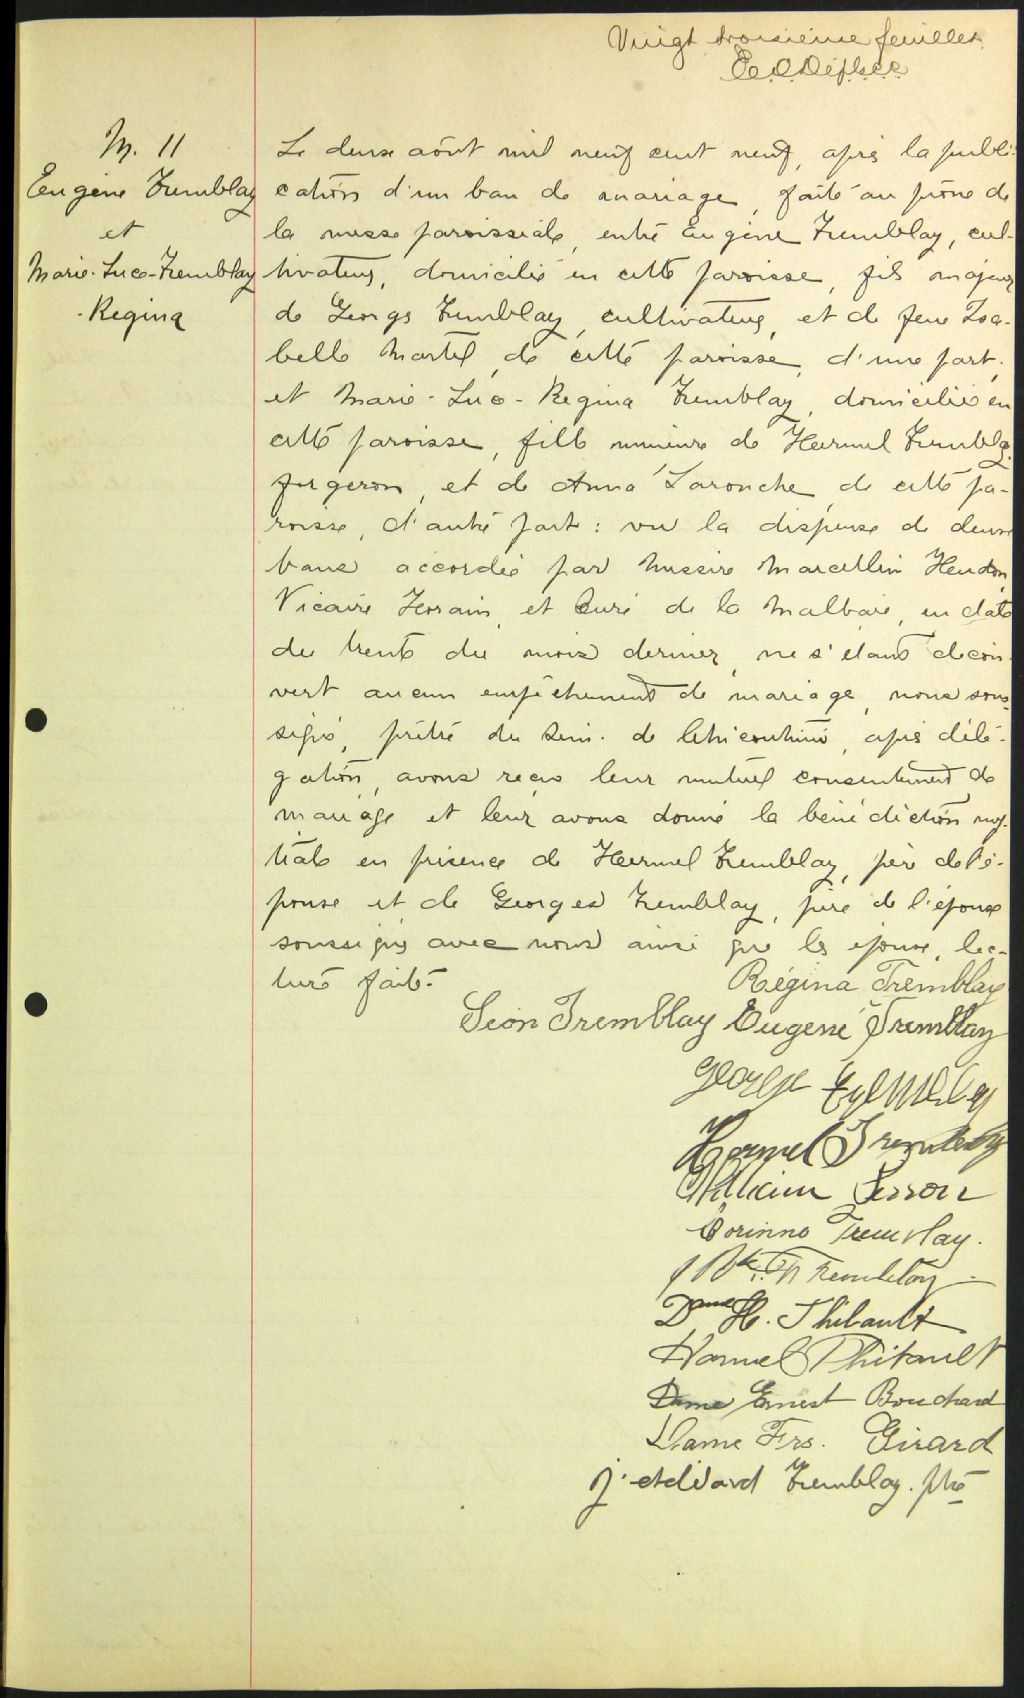 Vingt troisième feuillet.
M. 11
Eugène Tremblay
et
Marie-Luce-Tremblay
-Regina
Le deux août mil neuf cent neuf, après la publi-
cation d'un ban de mariage, faite au prône de
la messe paroissiale, entre Eugène Tremblay, cul-
tivateur, domicilié en cette paroisse, fils majeur
de Georges Tremblay, cultivateur, et de feue Isa-
belle Martel, de cette paroisse, d'une part,
et Marie-Luce-Regina Tremblay, domiciliée en
cette paroisse, fille mineure de Hermel Tremblay
forgeron, et de Anna Larouche, de cette pa-
roisse, d'autre part: vu la dispense de deux
bans accordée par Messire Marcellin Hudon
Vicaire Forain, et Curé de la Malbaie, en date
du trente du mois dernier, ne s'étant décou-
vert aucun empêchement de mariage, nous sous-
signé, prêtre du Sém. de Chicoutimi, après délé-
gation, avons reçu leur mutuel consentement de
mariage et leur avons donné la bénédiction nup-
tiale en présence de Hermel Tremblay, père de l'é-
pouse et de Georges Tremblay, père de l'époux
soussignés avec nous ainsi que les époux, lec-
ture faite.
Régina Tremblay
Léon Tremblay Eugene Tremblay
George Tremblay
Hermel Tremblay
William Perron
Corinne Tremblay.
Tremblay
Dame H. Thibault
Harmel Thibault
Dame Ernest Bouchard
Dame Frs. Girard
J. Edward Tremblay. ptre